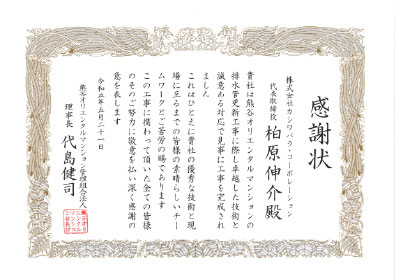 感謝状
株式会社カシワバラ・コーポレーション
代表取締役 柏原伸介殿
貴社は熊谷オリエンタルマンションの
排水管更新工事に際し卓越した技術と
誠意ある対応で見事に工事を完成され
ました
これはひとえに貴社の優秀な技術と現
場に至るまでの皆様の素晴らしいチー
ムワークとご苦労の賜であります
この工事に携わって頂いた全ての皆様
のそのご努力に敬意を払い深く感謝の
意を表します
令和五年五月二十一日
熊谷オリエンタルマンション管理組合法人
理事長 代島健司